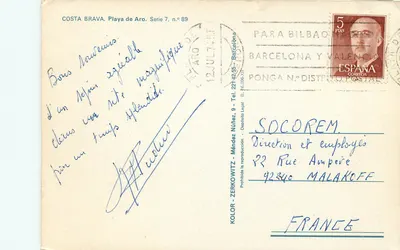 COSTA BRAVA. Playa de Aro. Serie 7. n.º 69
Bons souvenirs
d'un séjour agréable
dans un site magnifique
par un temps splendide.
KOLOR - ZERKOWITZ - Méndez Núñez, 9 - Tel. 221 62 55 - Barcelona
PARA BILBAO
BARCELONA Y VALEN
PONGA N.º DISTRITO POSTAL
5
PTAS
ESPAÑA
CORREOS
SOCOREM
Direction et employés
22 Rue Ampère
92240 MALAKOFF
FRANCE